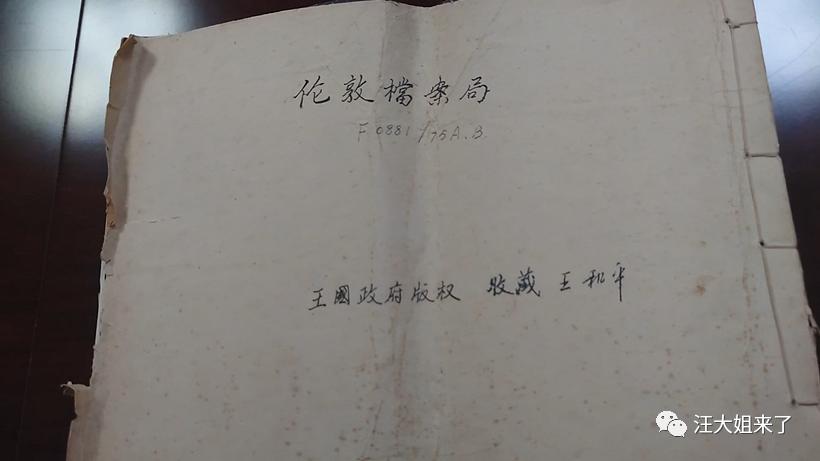 伦敦檔案局
F 0881/75A.B.
王國政府版权 收藏 王和平
汪大姐来了